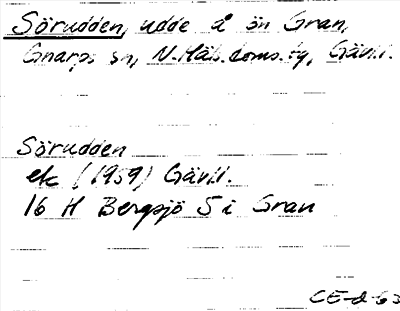 Sörudden, udde å ön Gran,
Gnarps sn, N. Häls. doms. tg, Gävl.
Sörudden
ek (1959) Gävl.
16 H Bergsjö S i Gran
CE-d-63